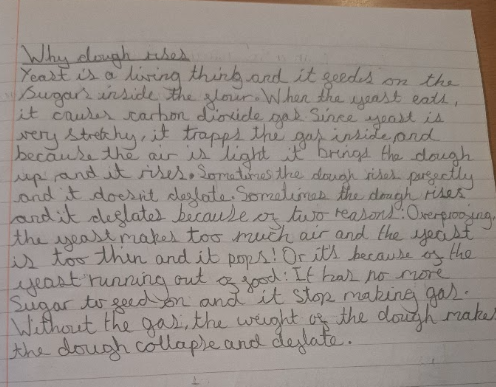 Why dough rises
Yeast is a living thing and it feeds on the
Sugars inside the flour. When the yeast eats,
it causes carbon dioxide gas. Since yeast is
very stretchy, it trapps the gas inside, and
because the air is light it brings the dough
up and it rises. Sometimes the dough rises perfectly
and it doesn't deflate. Sometimes the dough rises
and it deflates because of two reasons: Overproofing,
the yeast makes too much air and the yeast
is too thin and it pops! Or it's because of the
yeast running out of food: It has no more
Sugar to feed on and it stop making gas.
Without the gas, the weight of the dough makes
the dough collapse and deflate.